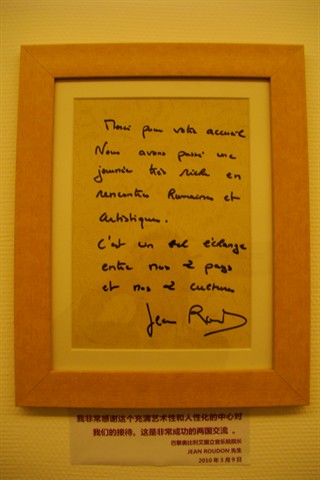 Merci pour votre accueil
Nous avons passé une
journée très riche en
rencontres Humaines et
Artistiques.
C'est un bel échange
entre nos 2 pays
et nos 2 cultures
Jean
我非常感谢这个充满艺术性和人性化的中心对
我们的接待，这是非常成功的两国交流 。
巴黎佛比利艾国立音乐院院长
JEAN ROUDON 先生
2010 年 3 月 9 日